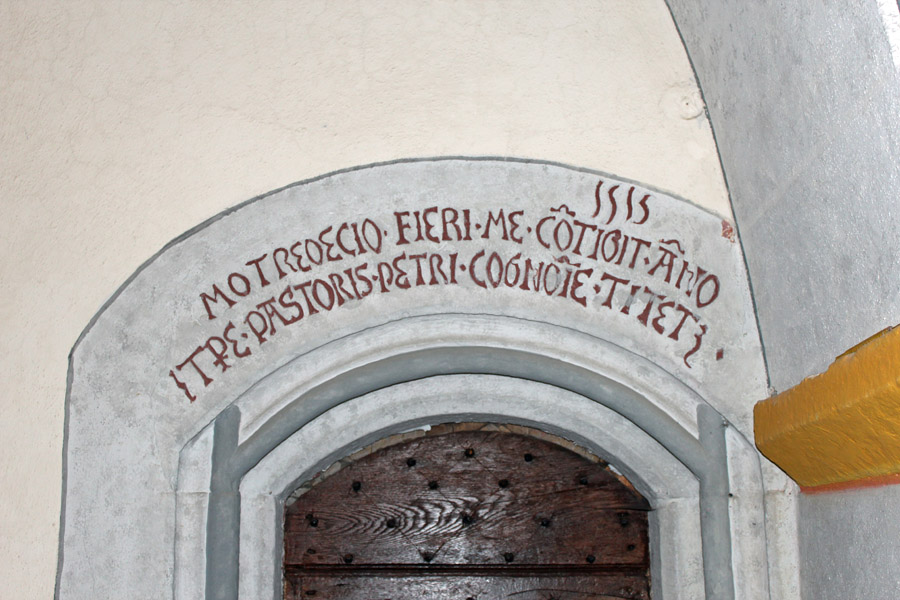 1515
MOTREDECIO · FIERI · ME · CÔTIGIT · ÃNO
ITPE · PASTORIS · PETRI · COGNOĨE · TITETZ ·